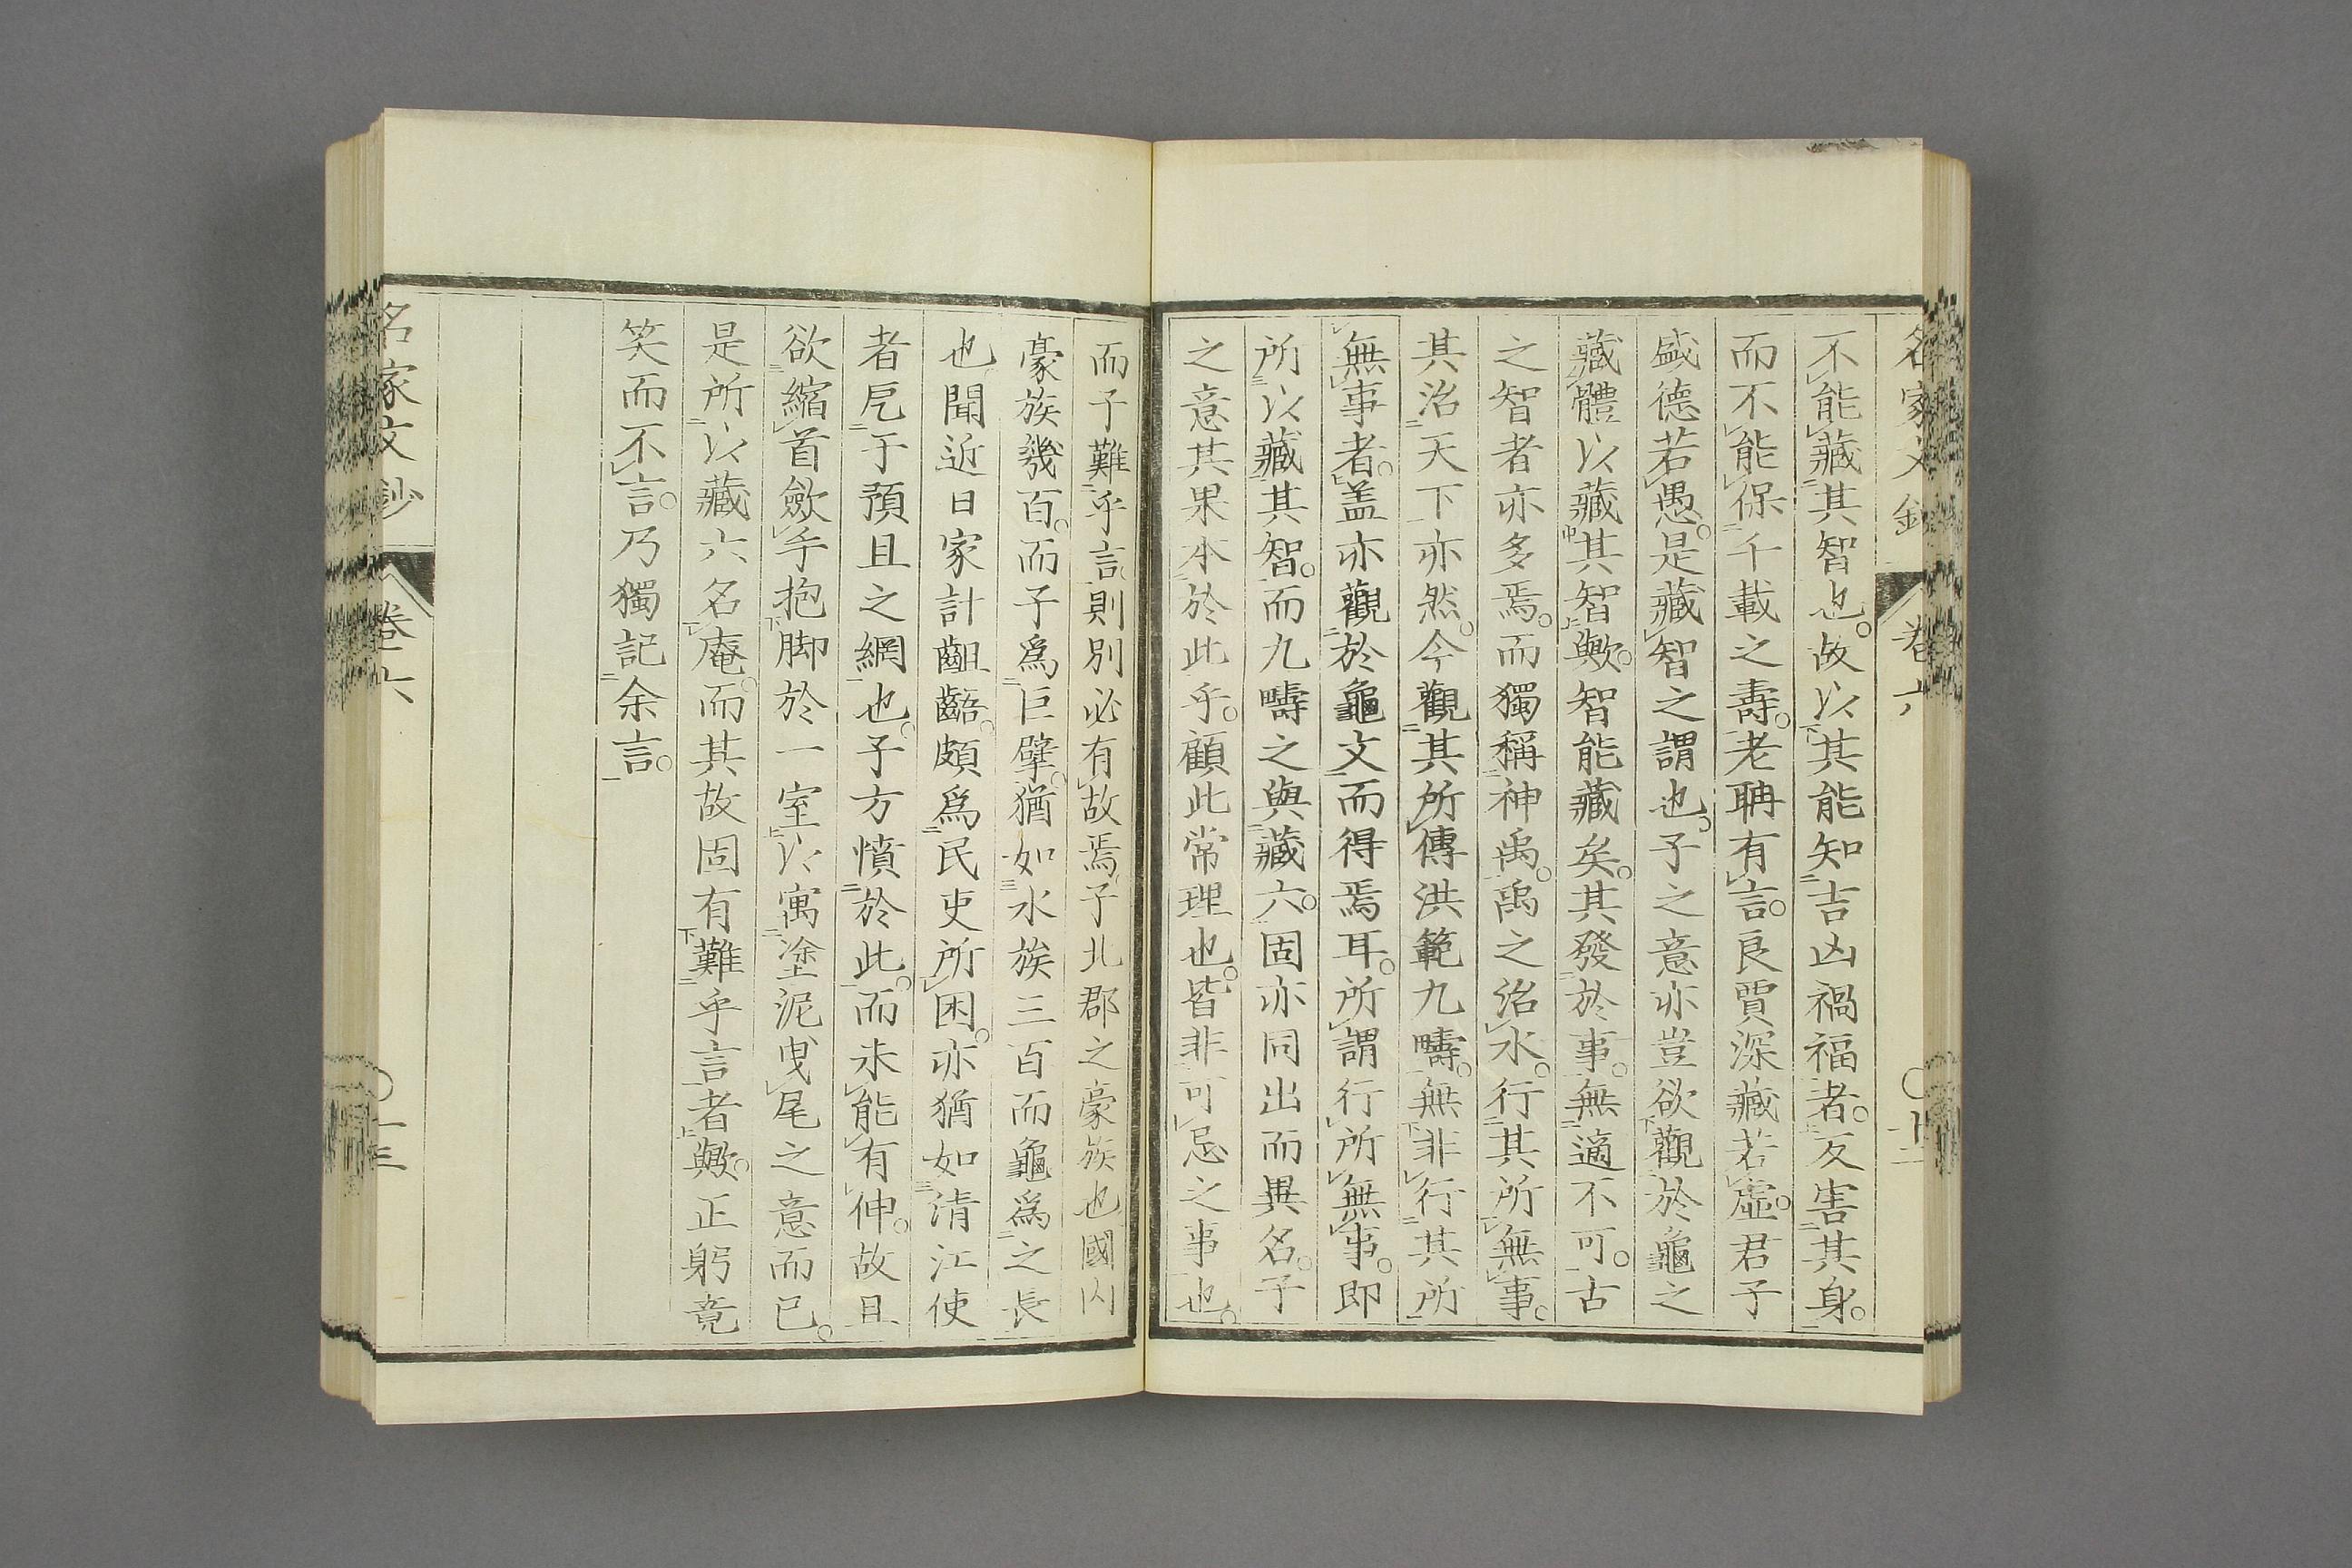 名家文鈔 卷六 十二
不能藏其智也。故以其能知吉凶禍福者。反害其身。
而不能保千載之壽。老聃有言。良賈深藏若虛。君子
盛德若愚。是藏智之謂也。子之意亦豈欲觀於龜之
藏體以藏其智歟。智能藏矣。其發於事。無適不可。古
之智者亦多焉。而獨稱神禹。禹之治水。行其所無事。
其治天下亦然。今觀其所傳洪範九疇。無非行其所
無事者。盖亦觀於龜文而得焉耳。所謂行所無事。即
所以藏其智。而九疇之與藏六。固亦同出而異名。子
之意其果本於此乎。顧此常理也。皆非可忌之事也。
而子難乎言。則別必有故焉。子北郡之豪族也國内
豪族幾百。而子爲巨擘。猶如水族三百而龜爲之長
也聞近日家計齟齬。頗爲民吏所困。亦猶如清江使
者戹于預且之網也。子方憤於此。而未能有伸。故且
欲縮首斂手抱脚於一室以寓塗泥曳尾之意而已。
是所以藏六名庵。而其故固有難乎言者歟。正躬竟
笑而不言。乃獨記余言。
名家文鈔 卷六 十三